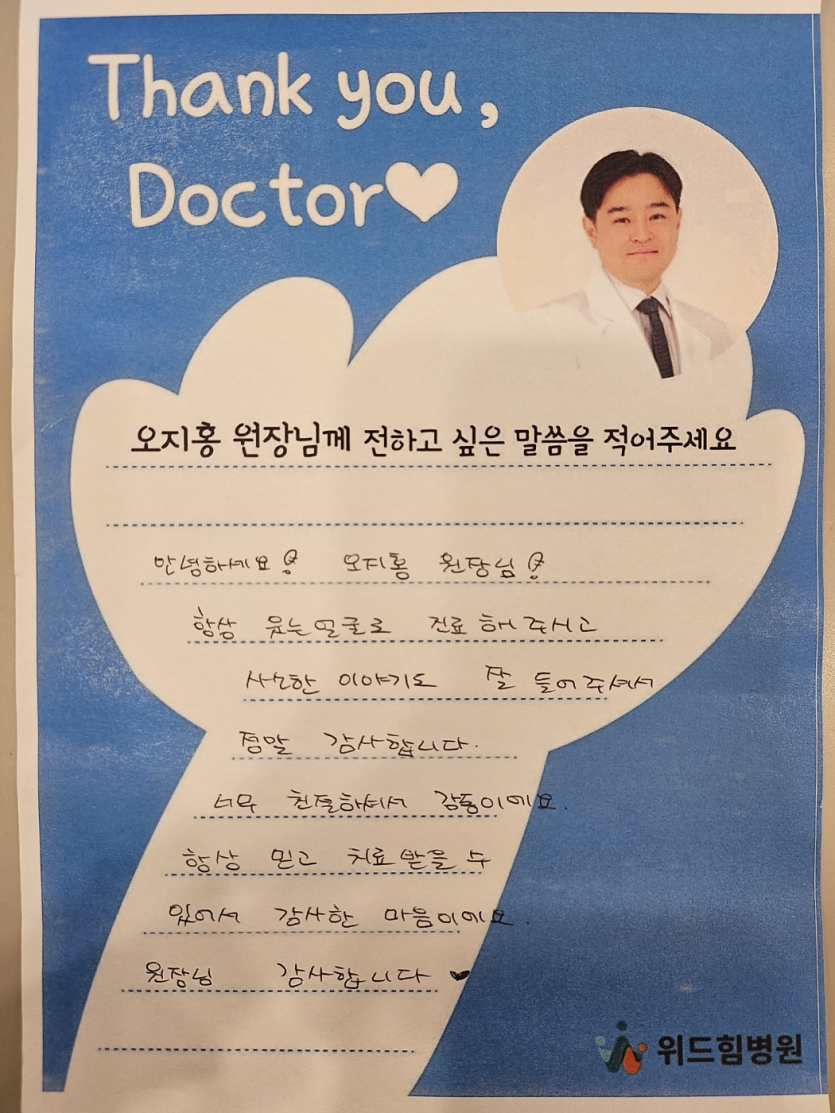 Thank you,
Doctor♥
오지홍 원장님께 전하고 싶은 말씀을 적어주세요
안녕하세요! 오지홍 원장님!
항상 웃는얼굴로 진료 해 주시고
사소한 이야기도 잘 들어주셔서
정말 감사합니다.
너무 친절하셔서 감동이에요.
항상 믿고 치료 받을 수
있어서 감사한 마음이에요.
원장님 감사합니다 ♥
위드힘병원